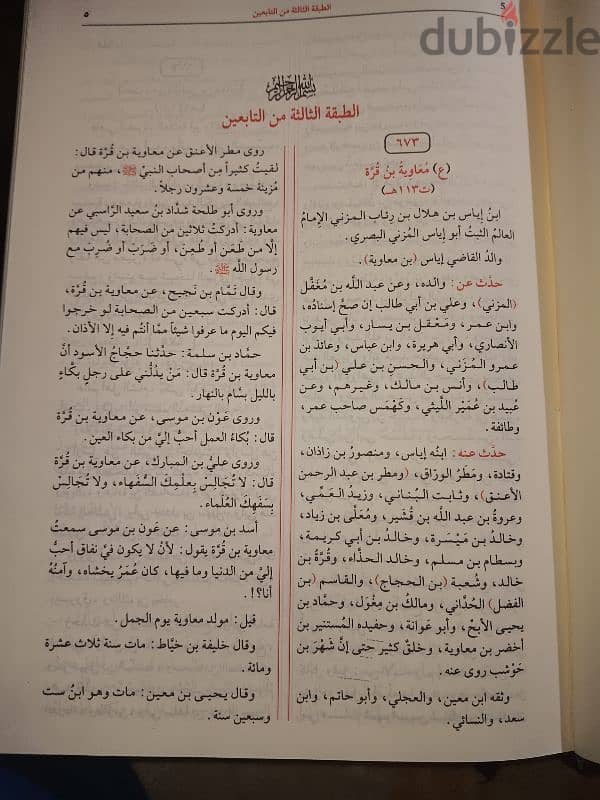 ٥
الطبقة الثالثة من التابعين
5
dubizzle
بسم الله الرحمن الرحيم
الطبقة الثالثة من التابعين
٦٧٣
(ع) مُعَاوِيَةُ بنُ قُرَّة
(ت١١٣هـ)
ابنُ إياس بن هلال بن رئاب المزني الإمامُ
العالمُ الثبتُ أبو إياس المُزني البصري.
والدُ القاضي إياس (بن معاوية).
حدَّث عن: والده، وعن عبد الله بن مُغَفَّل
(المزني)، وعلي بن أبي طالب إن صحَّ إسنادُه،
وابن عمر، ومَعْقَل بن يسار، وأبي أيوب
الأنصاري، وأبي هريرة، وابن عباس، وعائذ بن
عمرو المُزَني، والحسن بن علي (بن أبي
طالب)، وأنس بن مالك، وغيرهم، وعن
عُبيد بن عُمَيْر الليثي، وكَهْمَس صاحب عمر،
وطائفة.
حدَّث عنه: ابنُه إياس، ومنصورُ بن زاذان،
وقتادة، ومَطَرُ الوراق، (ومطر بن عبد الرحمن
الأعنق)، وثابت البُناني، وزيدٌ العَمِّي،
وعروةُ بن عبد الله بن قُشَير، ومُعَلَّى بن زياد،
وخالدُ بن مَيْسَرة، وخالدُ بن أبي كريمة،
وبسطام بن مسلم، وخالد الحذَّاء، وقُرَّةُ بن
خالد، وشُعبة (بن الحجاج)، والقاسم (بن
الفضل) الحُدَّاني، ومالكُ بن مِغْوَل، وحمَّاد بن
يحيى الأبحّ، وأبو عَوانة، وحفيده المُستنير بن
أخضر بن معاوية، وخلقٌ كثير حتى إنَّ شَهْرَ بن
حَوْشب روى عنه.
وثقه ابن معين، والعجلي، وأبو حاتم، وابن
سعد، والنسائي.
روى مطر الأعنق عن معاوية بن قُرَّة قال:
لقيتُ كثيراً مِن أصحاب النبيِّ ﷺ، منهم من
مُزينة خمسة وعشرون رجلاً.
وروى أبو طلحة شدَّاد بنُ سعيد الرَّاسبي عن
معاوية: أدركتُ ثلاثين من الصحابة، ليس فيهم
إلَّا من طَعَن أو طُعِنَ، أو ضَرَبَ أو ضُرِبَ مع
رسول الله ﷺ.
وقال تمَّام بن نَجيح، عن معاوية بن قُرة،
قال: أدركت سبعين من الصحابة لو خرجوا
فيكم اليوم ما عرفوا شيئاً ممَّا أنتُم فيه إلا الأذان.
حمَّاد بن سلمة: حدَّثنا حجَّاجٌ الأسود أنَّ
معاوية بن قُرَّة قال: مَنْ يَدُلُّني على رجلٍ بكَّاءٍ
بالليل بسَّام بالنهار.
وروى عَوْن بن موسى، عن معاوية بن قُرَّة
قال: بُكاءُ العمل أحبُّ إليَّ من بكاء العين.
وروى عليُّ بن المبارك، عن معاوية بن قُرَّة
قال: لا تُجَالِسْ بِعلمِكَ السُّفهاء، ولا تُجَالِسْ
بِسَفَهِكَ العُلماء.
أسد بن موسى: عن عَون بن موسى سمعتُ
معاوية بن قُرَّة يقول: لأنْ لا يكون فيَّ نفاق أحبُّ
إليَّ من الدنيا وما فيها، كان عُمَرُ يخشاه، وآمَنُهُ
أنا؟!.
قيل: مولد معاوية يوم الجمل.
وقال خليفة بن خيَّاط: مات سنة ثلاث عشرة
ومائة.
وقال يحيى بن معين: مات وهو ابنُ ست
وسبعين سنة.